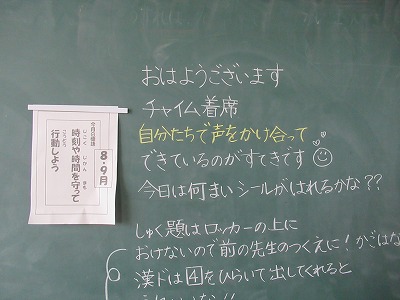 おはようございます
チャイム着席
自分たちで声をかけ合って
できているのがすてきです
今日は何まいシールがはれるかな??
しゅく題はロッカーの上に
おけないので前の先生のつくえに!かごはな
漢ドは④をひらいて出してくれると
8・9月
時刻や時間を守って
行動しよう